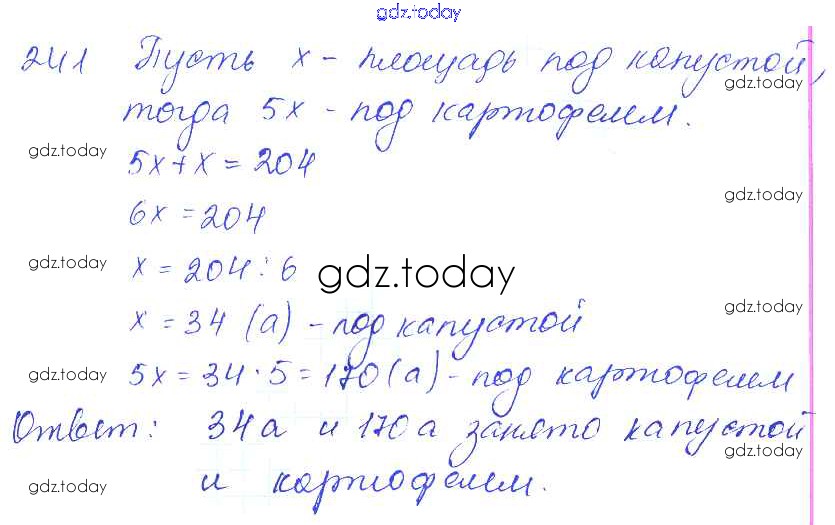 gdz.today
241 Пусть х - площадь под капустой,
gdz.today
тогда 5х - под картофелем.
gdz.today
5х + х = 204
gdz.today
6х = 204
gdz.today
х = 204 : 6
gdz.today
gdz.today
х = 34 (а) - под капустой
gdz.today
5х = 34 · 5 = 170 (а) - под картофелем
Ответ: 34 а и 170 а занято капустой
gdz.today
и картофелем.
gdz.today